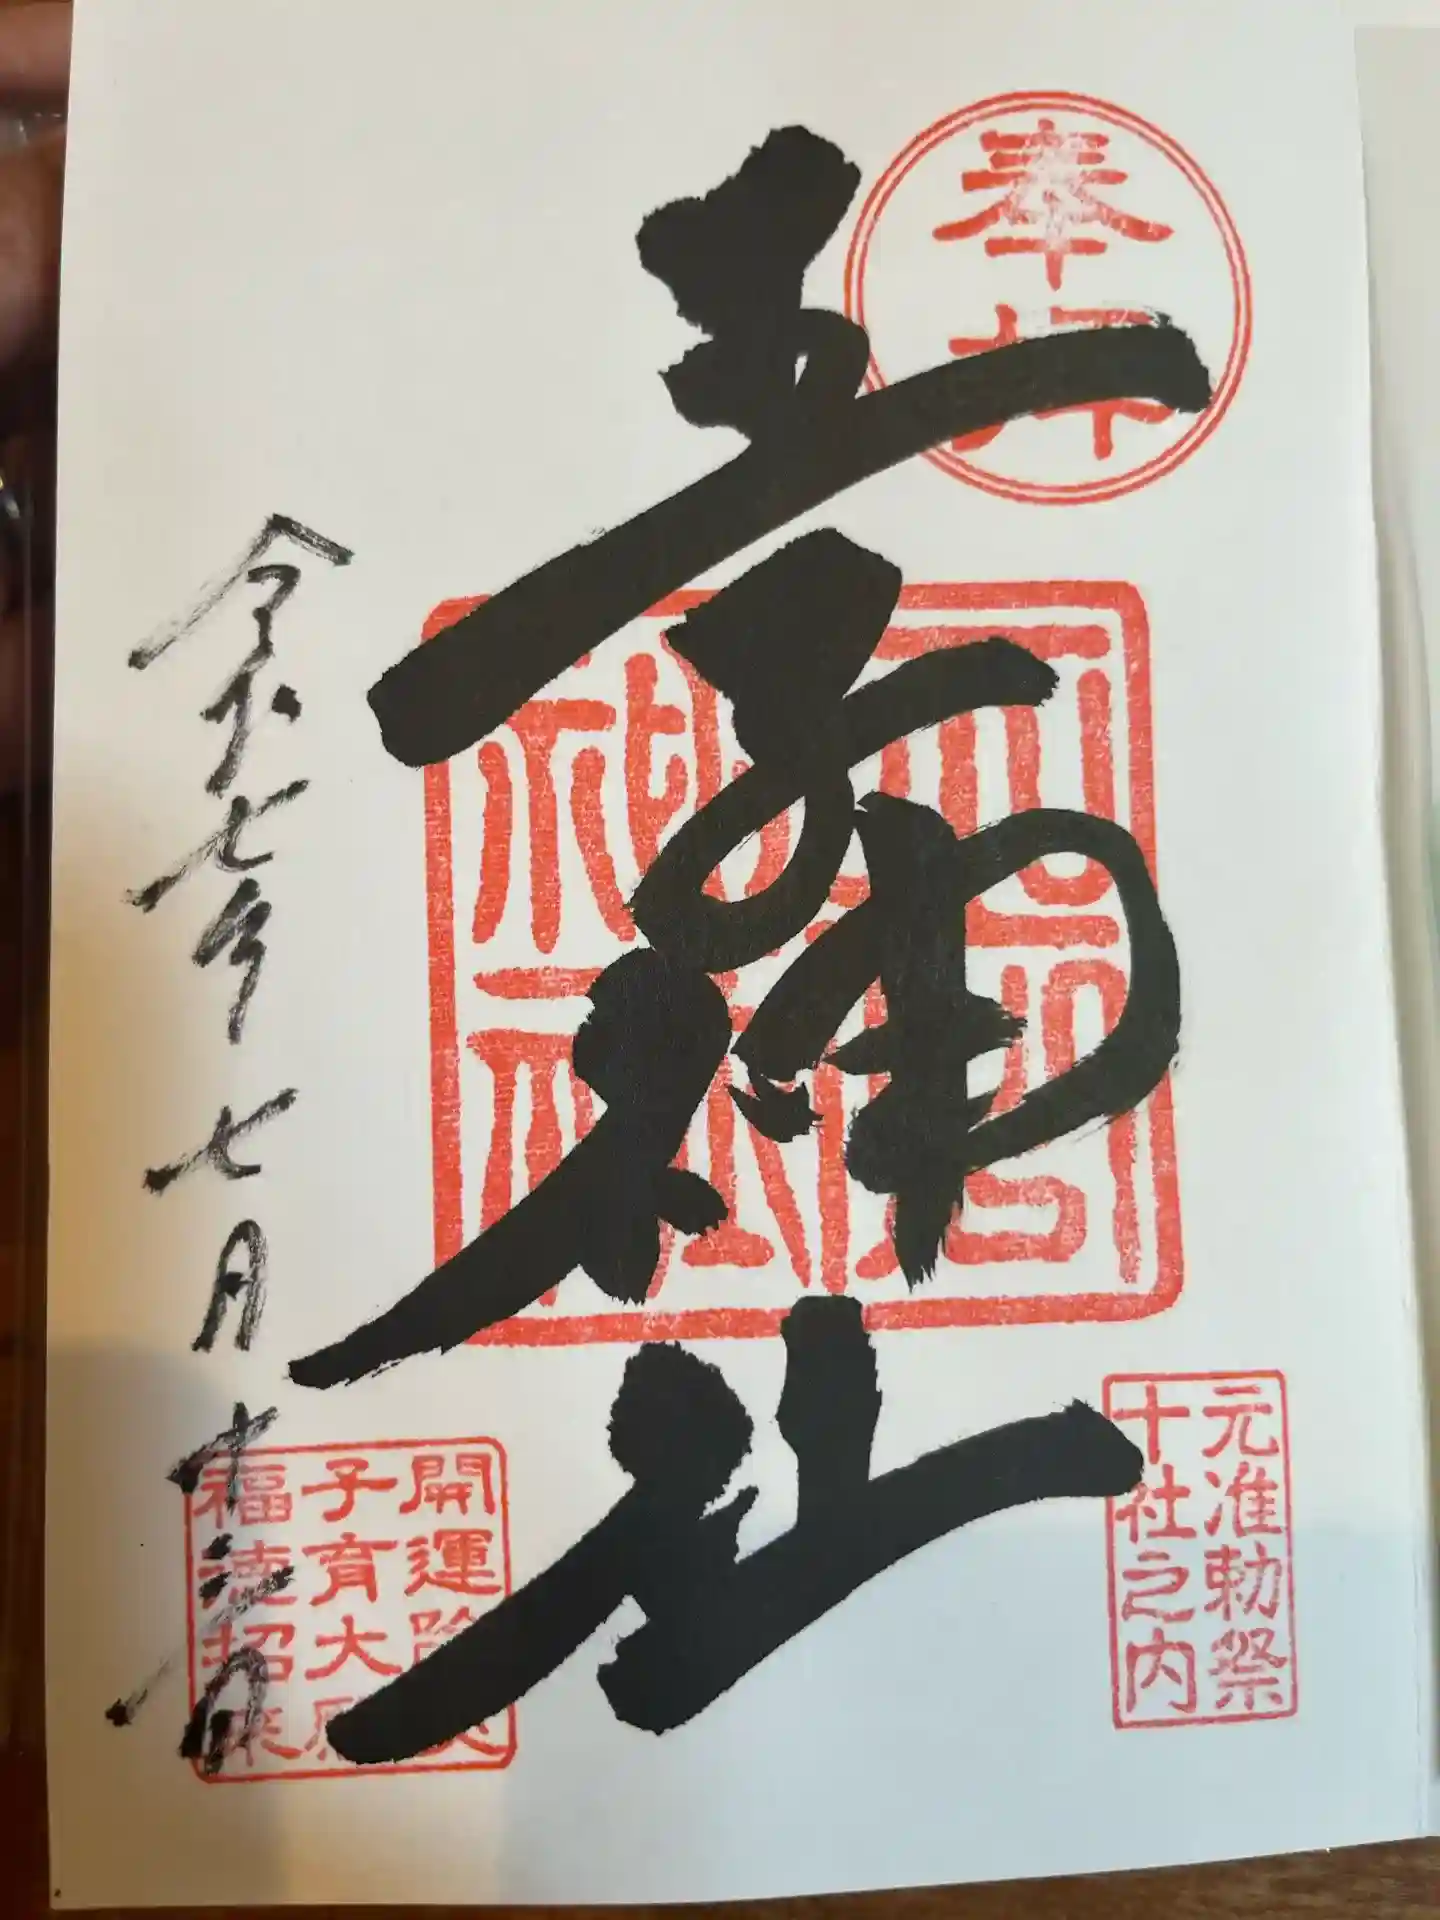 奉拝
王子神社
元准勅祭
十社之内
開運除災
子育大願
福徳招来
令和七年七月十